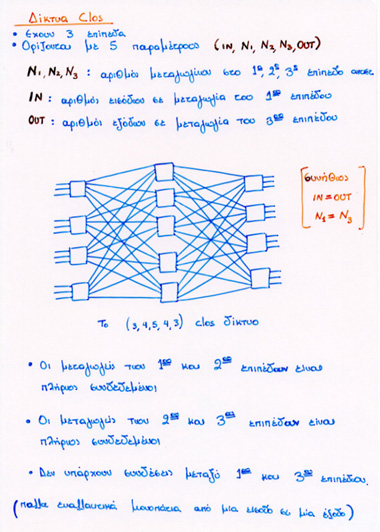 Δίκτυα Clos
• Έχουν 3 επίπεδα
• Ορίζονται με 5 παραμέτρους (IN, N₁, N₂, N₃, OUT)
N₁, N₂, N₃ : αριθμός μεταγωγέων στο 1ο, 2ο, 3ο επίπεδο
IN : αριθμός εισόδων σε μεταγωγέα του 1ου επιπέδου
OUT : αριθμός εξόδων σε μεταγωγέα του 3ου επιπέδου
συνήθως
IN = OUT
N₁ = N₃
Το (3,4,5,4,3) clos δίκτυο
• Οι μεταγωγείς των 1ου και 2ου επιπέδων είναι
πλήρως συνδεδεμένοι
• Οι μεταγωγείς των 2ου και 3ου επιπέδων είναι
πλήρως συνδεδεμένοι
• Δεν υπάρχουν συνδέσεις μεταξύ 1ου και 3ου επιπέδου.
(πολλά εναλλακτικά μονοπάτια από μία είσοδο σε μία έξοδο)